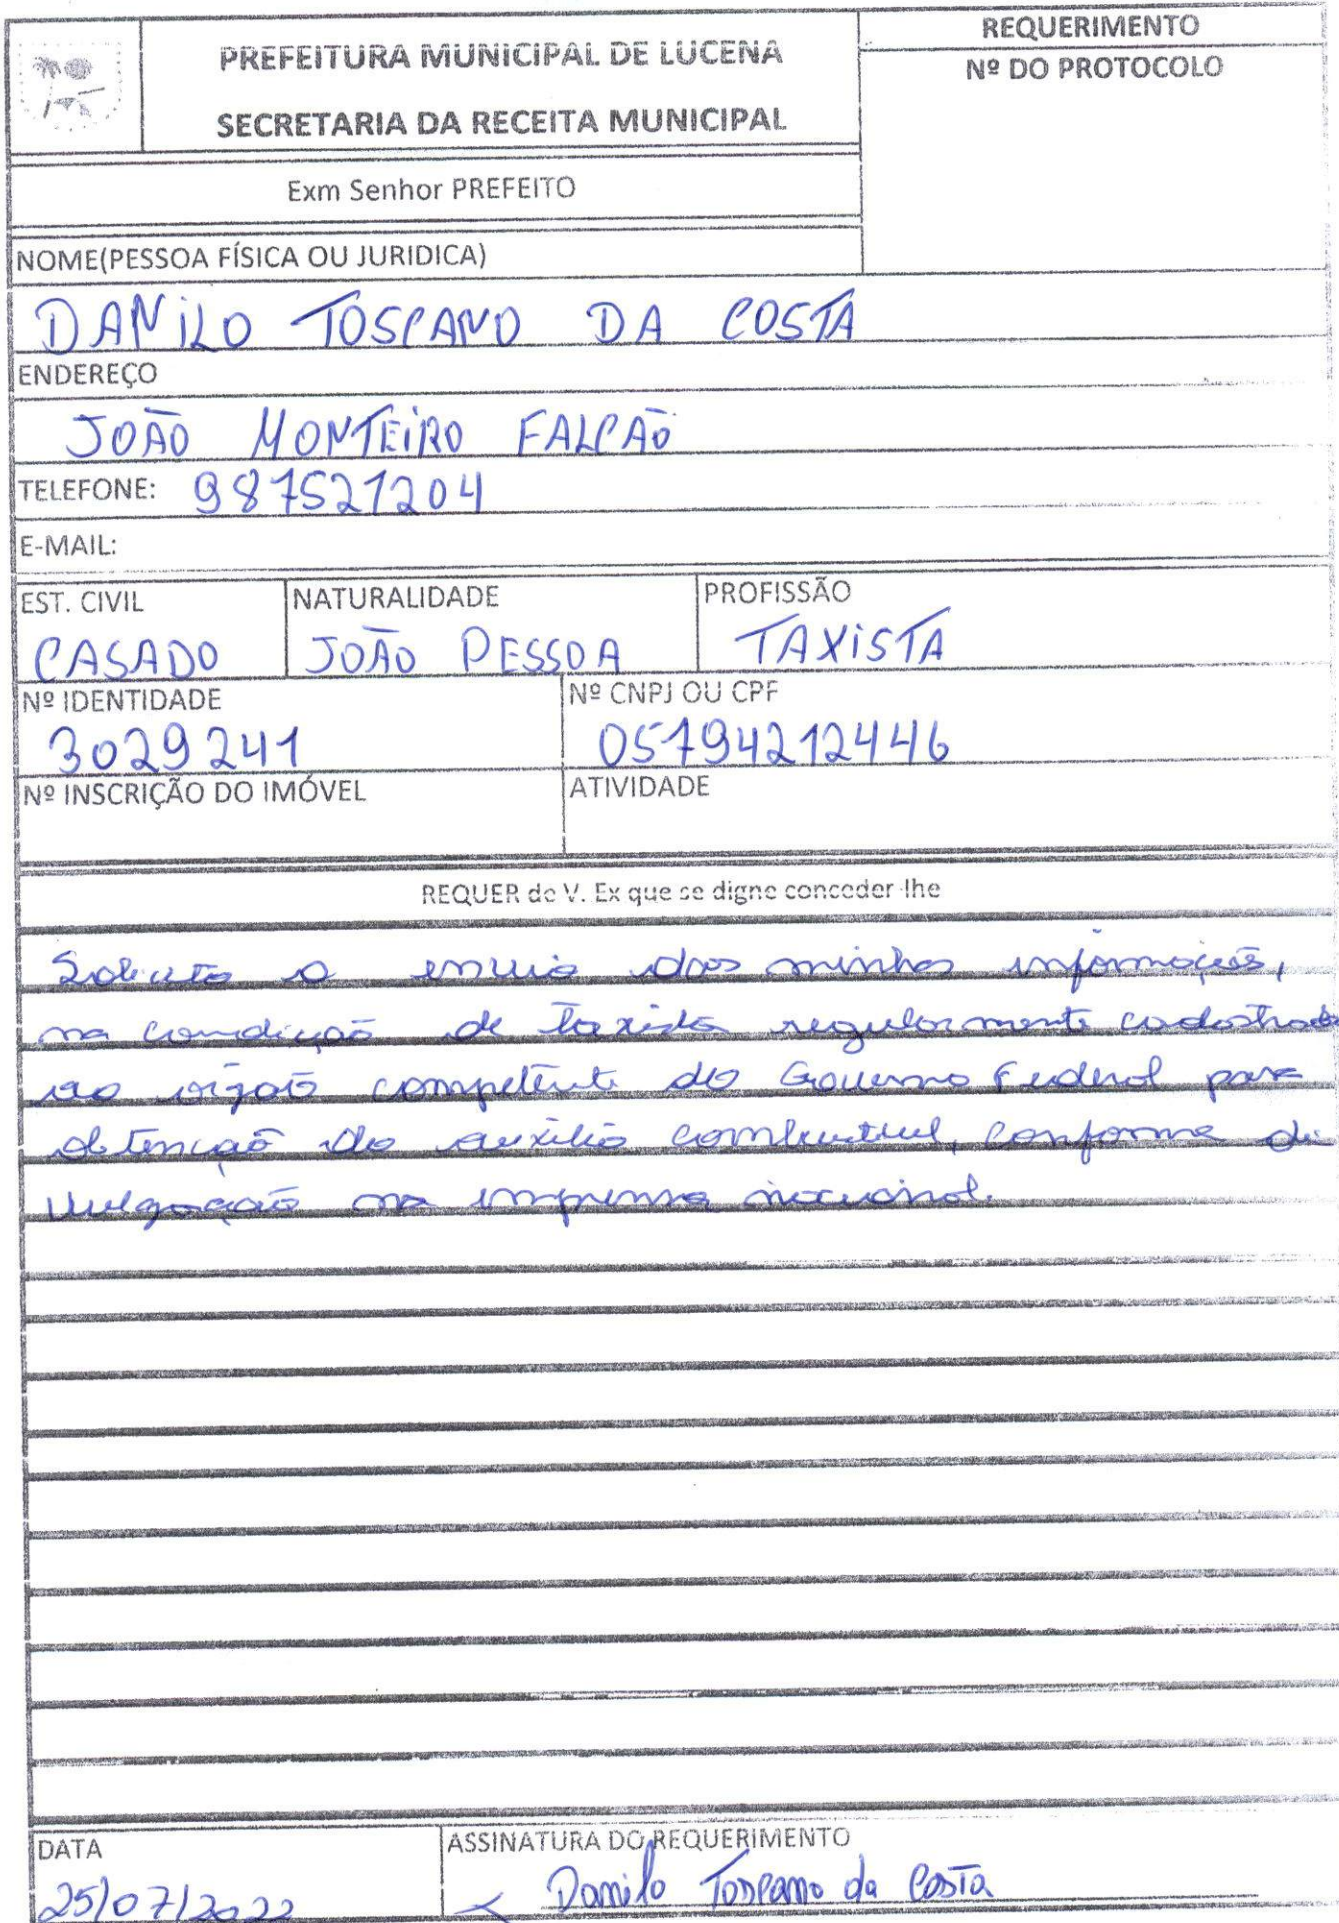 REQUERIMENTO
PREFEITURA MUNICIPAL DE LUCENA
Nº DO PROTOCOLO
SECRETARIA DA RECEITA MUNICIPAL
Exm Senhor PREFEITO
NOME(PESSOA FÍSICA OU JURIDICA)
DANILO TOSCANO DA COSTA
ENDEREÇO
JOÃO MONTEIRO FALCÃO
TELEFONE: 987521204
E-MAIL:
EST. CIVIL NATURALIDADE PROFISSÃO
CASADO JOÃO PESSOA TAXISTA
Nº IDENTIDADE Nº CNPJ OU CPF
3029241 05794212446
Nº INSCRIÇÃO DO IMÓVEL ATIVIDADE
REQUER de V. Ex que se digne conceder-lhe
Solicito o envio das minhas informações,
na condição de taxista regularmente cadastrado
ao órgão competente do Governo Federal para
obtenção do auxílio combustível, conforme di
vulgação na imprensa nacional.
DATA ASSINATURA DO REQUERIMENTO
25/07/2022 Danilo Toscano da Costa